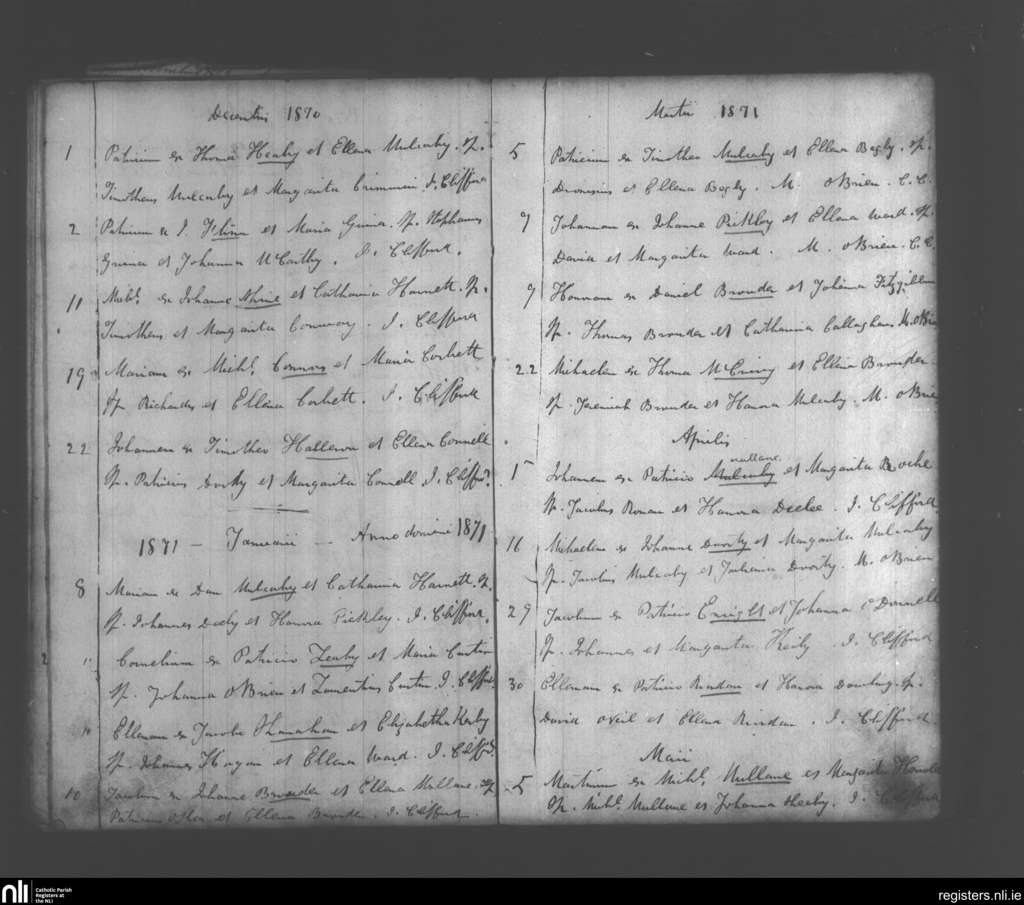 Decembris 1870
1 Patricium ex Thoma Healy et Ellena Mulcahy. Sp.
Timotheus Mulcahy et Margarita Crimmin J. Clifford
2 Patricium ex J. et Maria Guina. Sp. Stephanus
Guina et Johanna McCarthy. J. Clifford.
11 Michl. ex Johanne Ahrne et Catharina Harnett. Sp.
Timotheus et Margarita Conway. J. Clifford
19 Mariam ex Michl. Connors et Maria Corbett
Sp Richardus et Ellena Corbett. J. Clifford
22 Johannem ex Timotheo Halleron et Ellena Connell
Sp. Patricius et Margarita Connell J. Cliffd.
1871 — Januarii — Anno domini 1871
8 Mariam ex Dan Mulcahy et Catharina Harnett. Sp.
Sp. Johannes Deely et Honora Pickley. J. Clifford.
" Cornelium ex Patricio Leahy et Maria Curtin
Sp. Johanna O'Brien et Laurentius Curtin. J. Cliffd.
" Ellenam ex Jacobo Shanahan et Elizabetha Herby
Sp. Johannes Hogan et Ellena Ward. J. Cliffd.
10 Jacobum ex Johanne Browder et Ellena Mullane. Sp
Patricius et Ellena Browder. J. Clifford.
Martii 1871
5 Patricium ex Timotheo Mulcahy et Ellena Begly. Sp.
Dionysius et Ellena Begly. M. OBrien. C.C.
7 Johannem ex Johanne Pickley et Ellena Ward. Sp.
David et Margarita Ward. M. OBrien. C.C.
9 Honoram ex Daniel Browder et Johanna
Sp. Thomas Browder et Catharina Callaghan M. OBrie
22 Michaelem ex Thoma et Ellena Browder
Sp. Jeremiah Browder et Honora Mulcahy. M. OBrie
Aprilis
mullane
1 Johannem ex Patricio Mulcahy et Margarita Roche
Sp. Jacobus Ronan et Honora Deelee. J. Clifford
16 Michaelem ex Johanne Doorty et Margarita Mulcahy
Sp. Jacobus Mulcahy et Juliana Doorty. M. OBrien
29 Jacobum ex Patricio Enright et Johanna O'Donnell
Sp. Johannes et Margarita Healy. J. Clifford
30 Ellenam ex Patricio Riordan et Honora Dowling. Sp.
David ONeil et Ellena Riordan. J. Clifford
Maii
5 Martinum ex Michl. Mullane et Margarita
Sp. Michl. Mullane et Johanna Healy. J. Clifford
nli Catholic Parish
Registers at
the NLI
registers.nli.ie